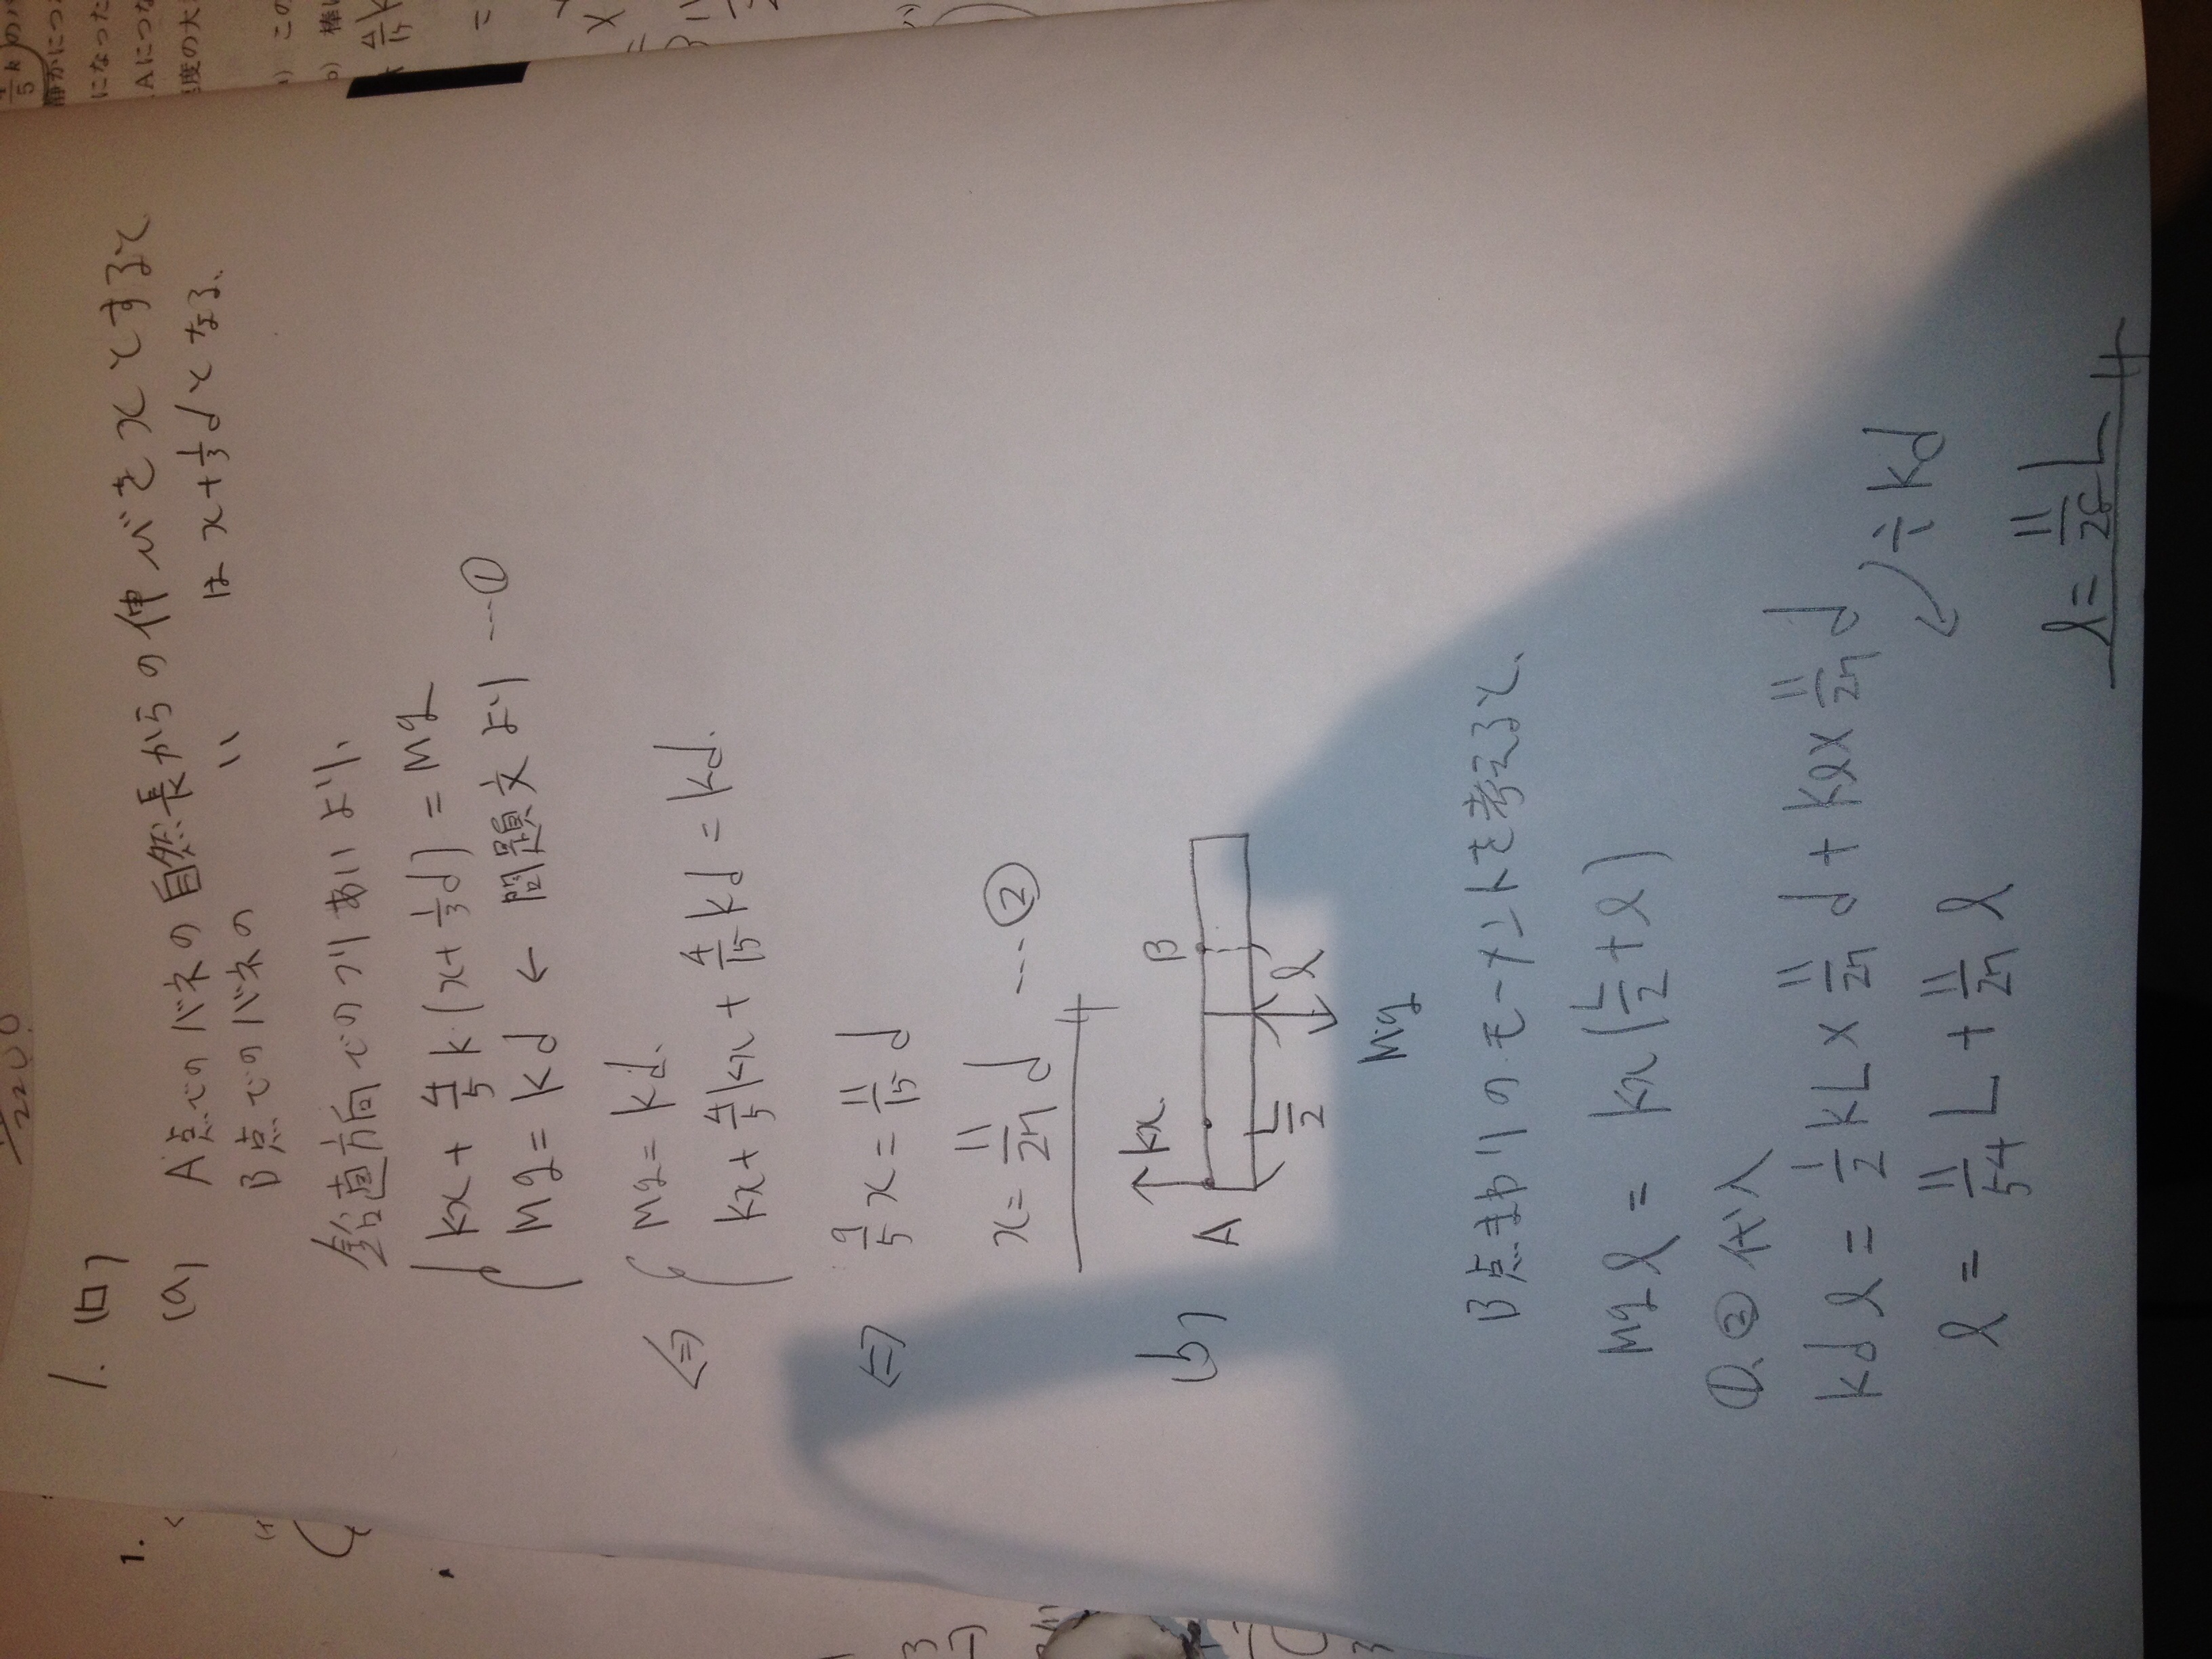 1. (ロ)
(a) A点でのバネの自然長からの伸びをxとすると
B点でのバネの 〃 は x+1/3dとなる.
鉛直方向でのつりあいより、
kx + 4/5k(x+1/3d) = Mg
Mg = kd ← 問題文より …①
⇔ Mg = kd.
kx + 4/5kx + 4/15kd = kd.
⇔ 9/5x = 11/15d
x = 11/27d …②
(b)
kx
A
B
L/2
l
Mg
B点まわりのモーメントを考えると、
Mgl = kx(L/2+l)
①、②代入
kdl = 1/2kL×11/27d + kl×11/27d
÷kd
l = 11/54L + 11/27l
l = 11/28L
1.
4/5kのバ
静かにつ
になった
Aにつな
度の大